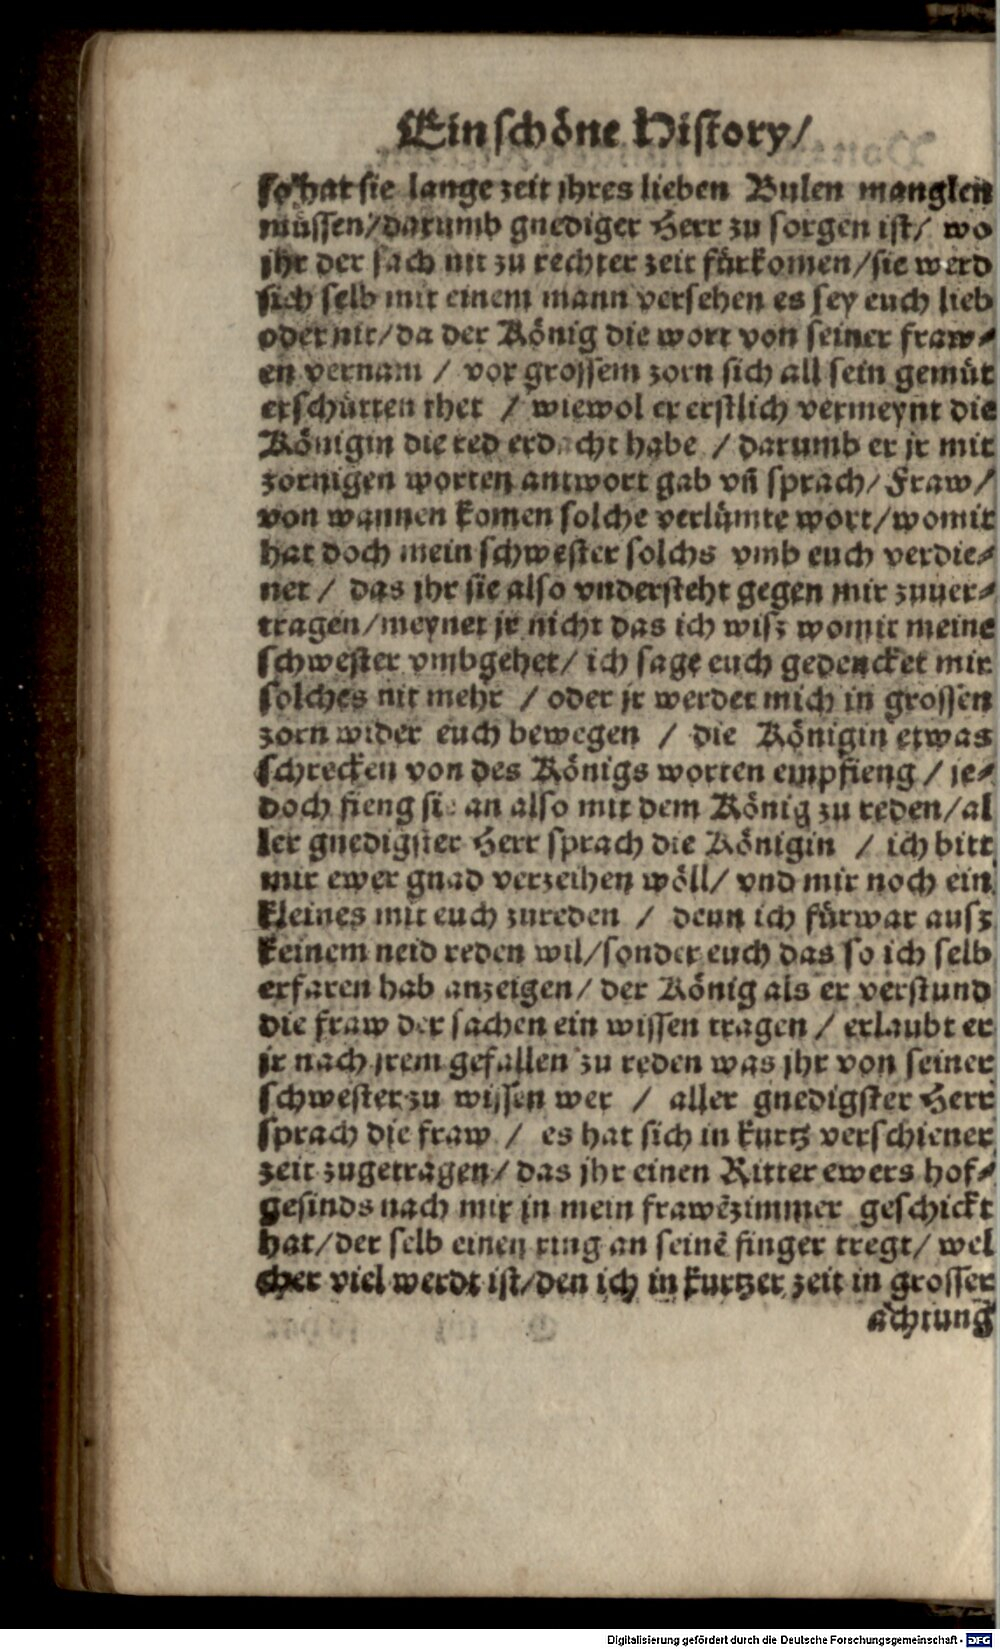 Ein schöne History/
so hat sie lange zeit jhres lieben Bulen manglen
müssen/darumb gnediger Herr zu sorgen ist/ wo
jhr der sach nit zu rechter zeit fürkomen/sie werd
sich selb mit einem mann versehen es sey euch lieb
oder nit/da der König die wort von seiner fraw⸗
en vernam / vor grossem zorn sich all sein gemüt
erschütten thet / wiewol er erstlich vermeynt die
Königin die red erdacht habe / darumb er jr mit
zornigen worten antwort gab vñ sprach/ Fraw/
von wannen komen solche verlümte wort/womit
hat doch mein schwester solchs vmb euch verdie⸗
net / das jhr sie also vndersteht gegen mir zuuer⸗
tragen/meynet jr nicht das ich wisz womit meine
schwester vmbgehet/ ich sage euch gedencket mir
solches nit mehr / oder jr werdet mich in grossen
zorn wider euch bewegen / die Königin etwas
schrecken von des Königs worten empfieng / je⸗
doch fieng sie an also mit dem König zu reden/al
ler gnedigster Herr sprach die Königin / ich bitt
mir ewer gnad verzeihen wöll/ vnd mir noch ein
kleines mit euch zureden / denn ich fürwar ausz
keinem neid reden wil/sonder euch das so ich selb
erfaren hab anzeigen/ der König als er verstund
die fraw der sachen ein wissen tragen / erlaubt er
jr nach jrem gefallen zu reden was jhr von seiner
schwester zu wissen wer / aller gnedigster Herr
sprach die fraw / es hat sich in kurtz verschiener
zeit zugetragen/ das jhr einen Ritter ewers hof⸗
gesinds nach mir in mein frawẽzimmer geschickt
hat/der selb einen ring an seinẽ finger tregt/ wel
cher viel werdt ist/den ich in kurtzer zeit in grosser
achtung
Digitalisierung gefördert durch die Deutsche Forschungsgemeinschaft - DFG